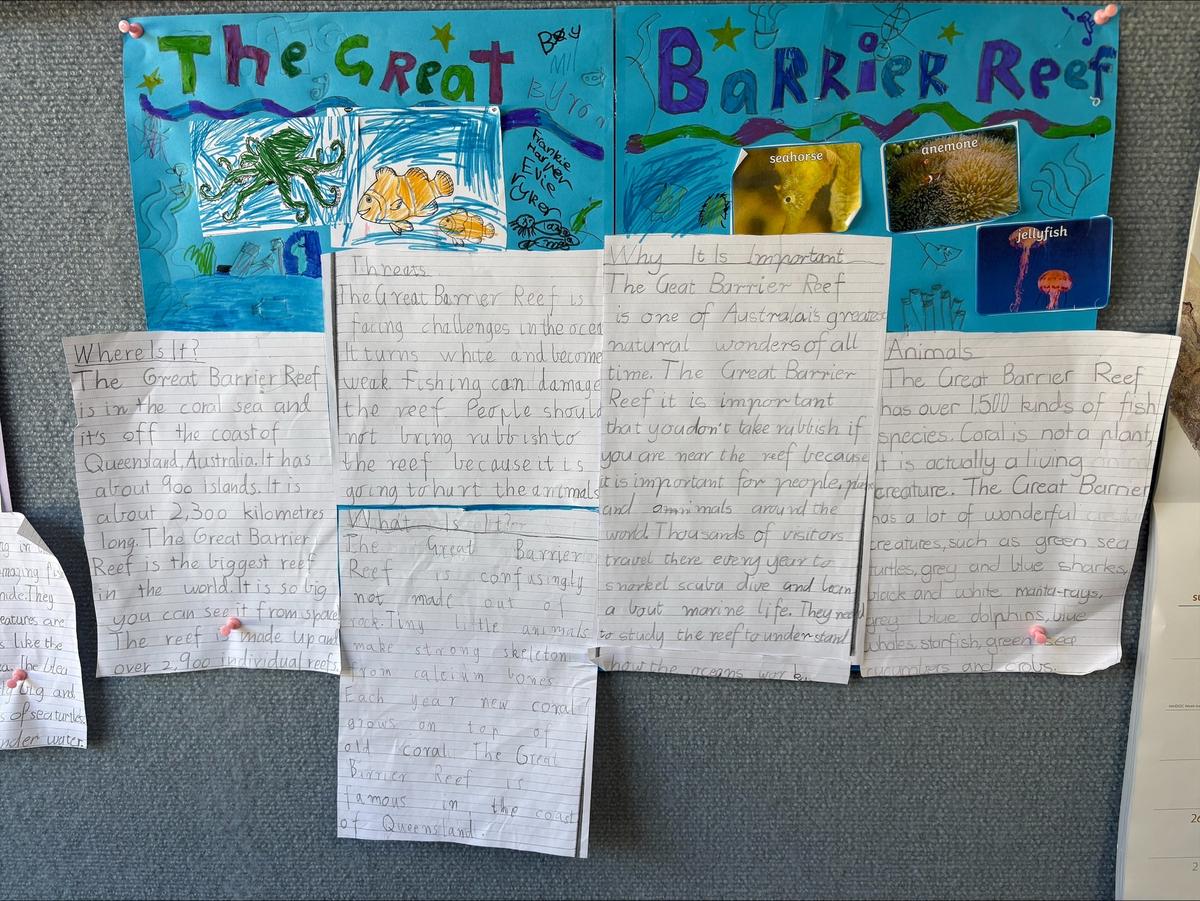 The Great
Barrier Reef
Byron
Frankie
Harper
Evie
Ryker
seahorse
anemone
jellyfish
Where Is It?
The Great Barrier Reef
is in the coral sea and
it's off the coast of
Queensland, Australia. It has
about 900 islands. It is
about 2,300 kilometres
long. The Great Barrier
Reef is the biggest reef
in the world. It is so big
you can see it from space
The reef is made up and
over 2,900 individual reefs.
Threats
The Great Barrier Reef is
facing challenges in the ocea
It turns white and become
weak Fishing can damage
the reef People should
not bring rubbish to
the reef because it is
going to hurt the animals
What Is It?
The Great Barrier
Reef is confusingly
not made out of
rock. Tiny little animals
make strong skeleton
from calcium bones
Each year new coral
grows on top of
old coral. The Great
Barrier Reef is
famous in the coast
of Queensland.
Why It Is Important
The Geat Barrier Reef
is one of Australais greatest
natural wonders of all
time. The Great Barrier
Reef it is important
that you don't take rubbish if
you are near the reef because
it is important for people,
and animals around the
world. Thousands of visitors
travel there every year to
snorkel scuba dive and learn
a bout marine life. They need
to study the reef to understand
how the oceans work
Animals
The Great Barrier Reef
has over 1,500 kinds of fish
species. Coral is not a plant,
it is actually a living
creature. The Great Barrier
has a lot of wonderful
creatures, such as green sea
turtles, grey and blue sharks,
black and white manta-rays,
grey blue dolphins, blue
whales, starfish, green sea
cucumbers and crabs.
ng in
mazing
nide. They
eatures are
s like the
ea. The
big and
s of seaturtles
nder water.
26
2